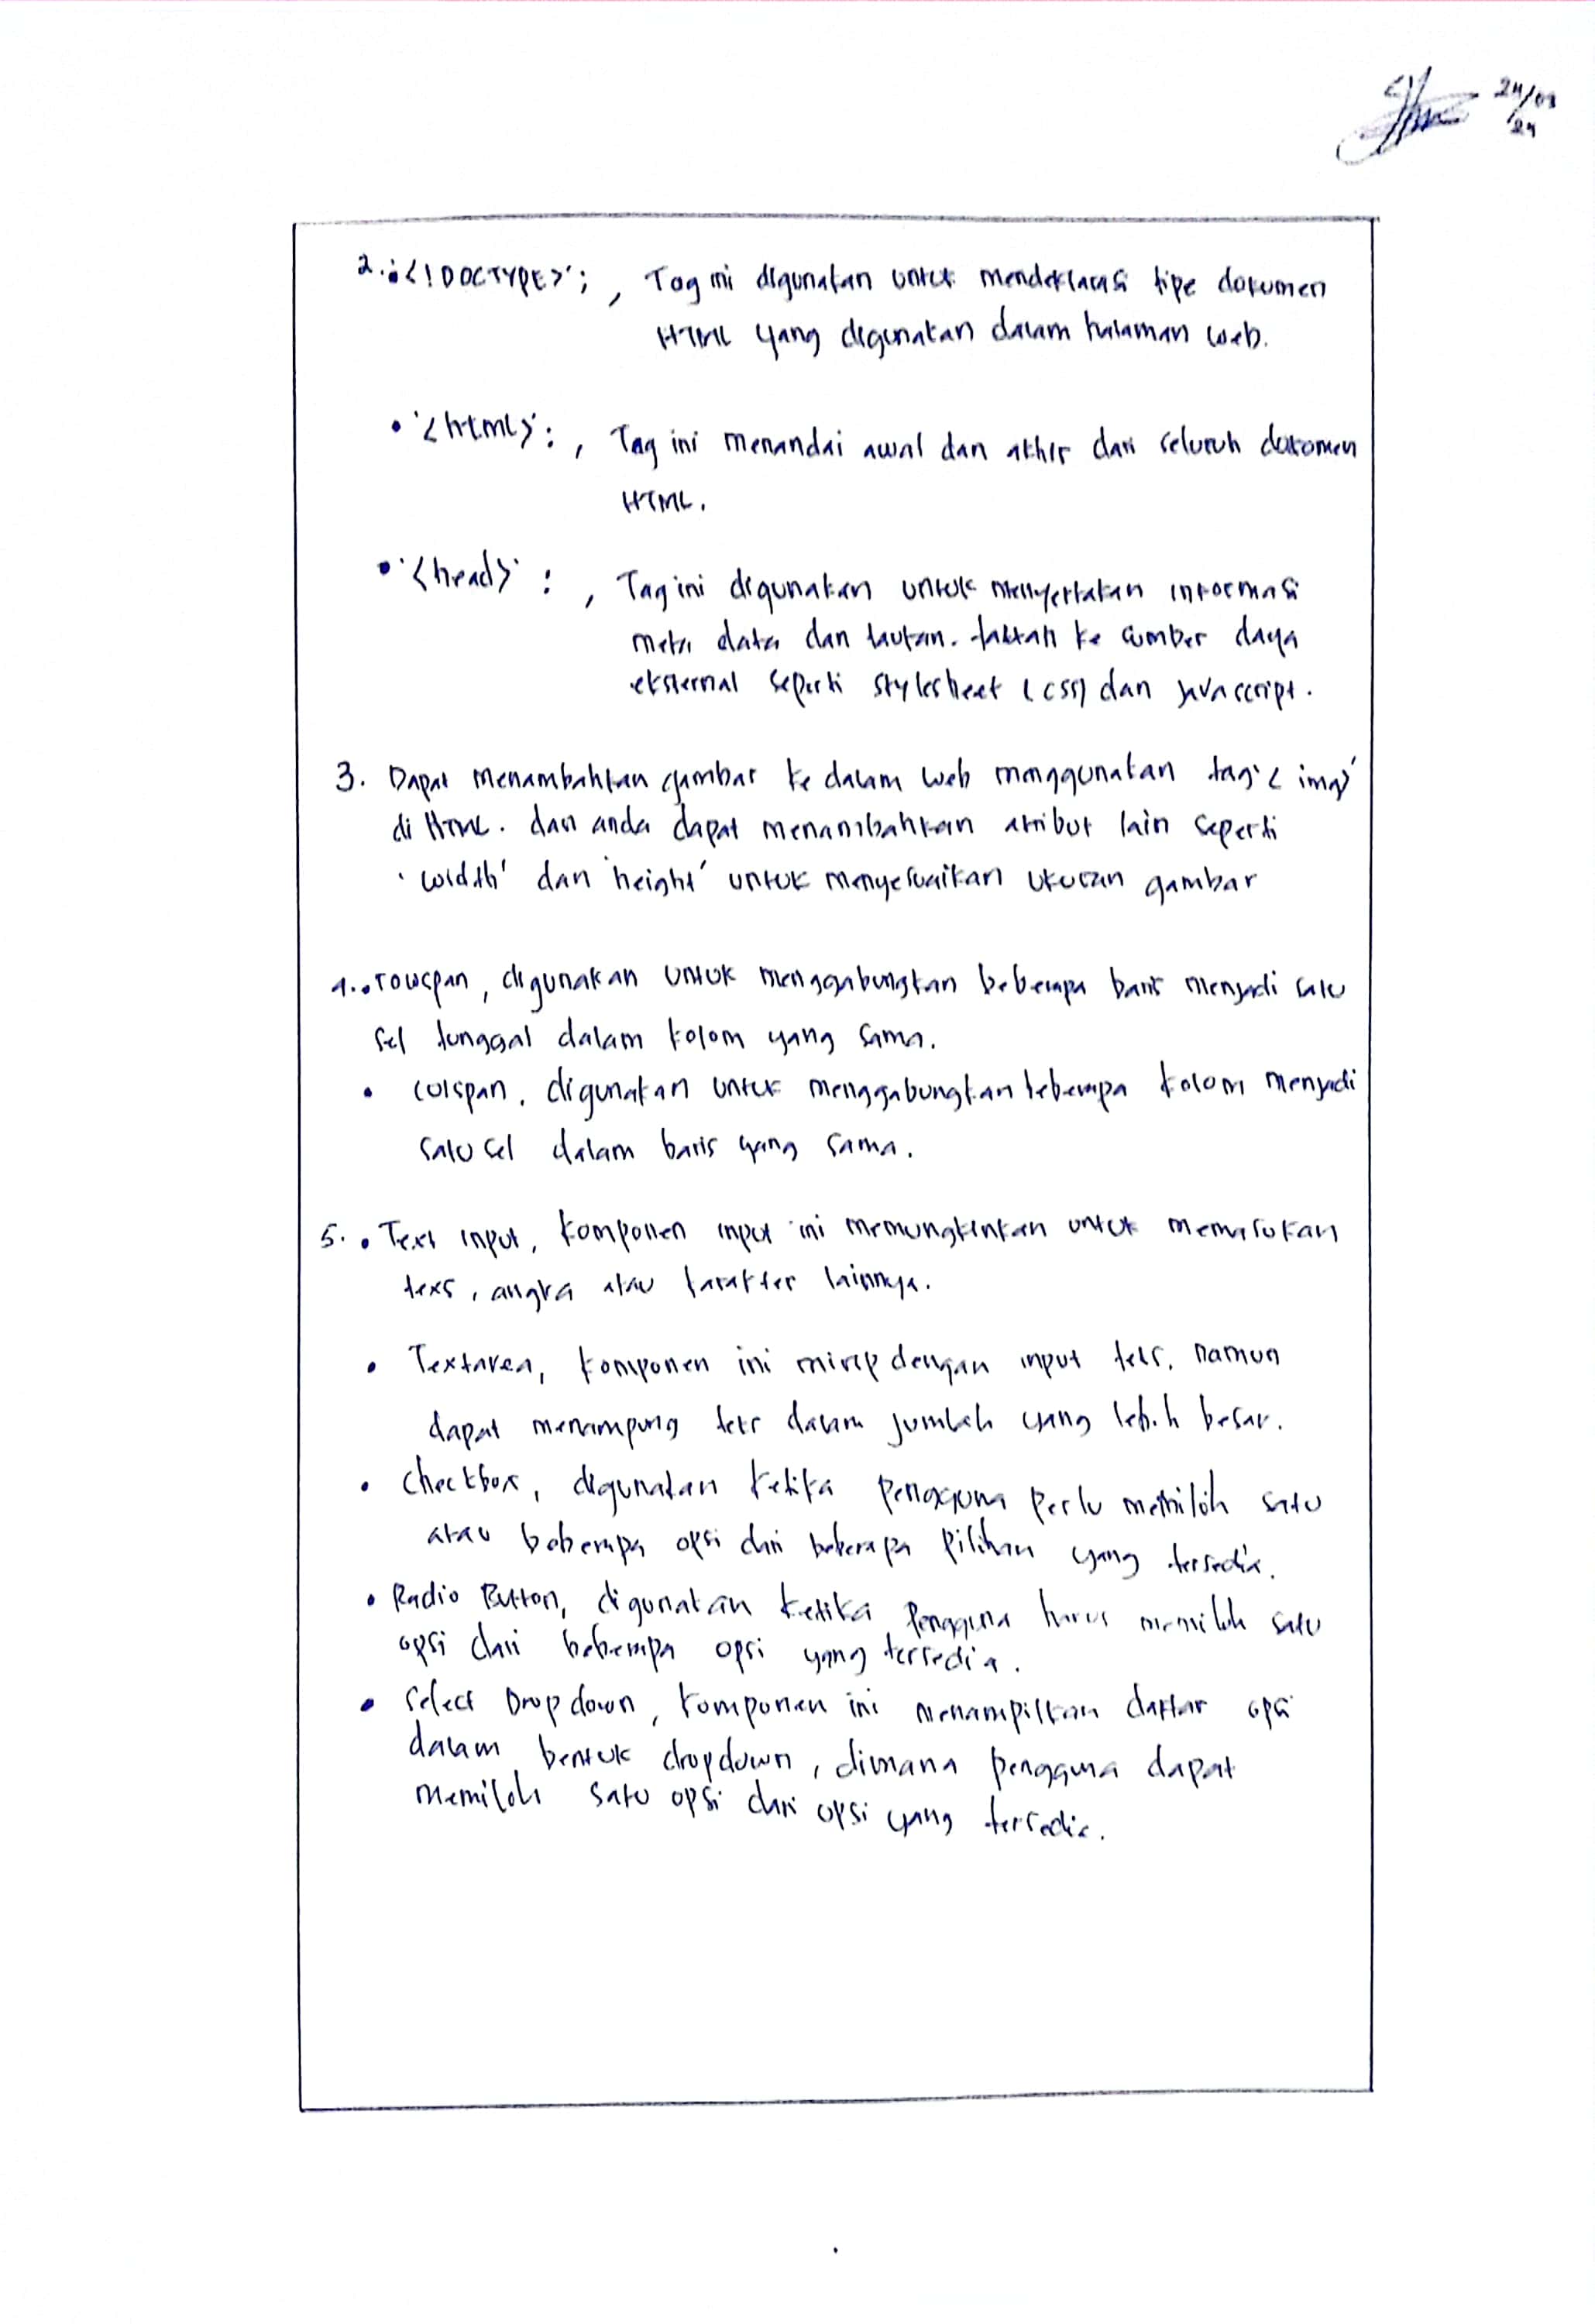 24/09
24
2. • '<!DOCTYPE>'; , Tag ini digunakan untuk mendeklarasi tipe dokumen
HTML yang digunakan dalam halaman web.
• '<html>' : , Tag ini menandai awal dan akhir dari seluruh dokumen
HTML.
• '<head>' : , Tag ini digunakan untuk menyertakan informasi
meta data dan tautan. ke sumber daya
eksternal seperti stylesheet (CSS) dan javascript.
3. Dapat menambahkan gambar ke dalam web menggunakan tag '<img>'
di HTML. dan anda dapat menambahkan atribut lain seperti
'width' dan 'height' untuk menyesuaikan ukuran gambar
4. • rowspan, digunakan untuk menggabungkan beberapa baris menjadi satu
sel tunggal dalam kolom yang sama.
• colspan, digunakan untuk menggabungkan beberapa kolom menjadi
satu sel dalam baris yang sama.
5. • Text input, komponen input ini memungkinkan untuk memasukan
teks, angka atau karakter lainnya.
• Textarea, komponen ini mirip dengan input teks, namun
dapat menampung teks dalam jumlah yang lebih besar.
• Checkbox, digunakan ketika pengguna perlu memilih satu
atau beberapa opsi dari beberapa pilihan yang tersedia.
• Radio Button, digunakan ketika pengguna harus memilih satu
opsi dari beberapa opsi yang tersedia.
• Select Dropdown, komponen ini menampilkan daftar opsi
dalam bentuk dropdown, dimana pengguna dapat
memilih satu opsi dari opsi yang tersedia.